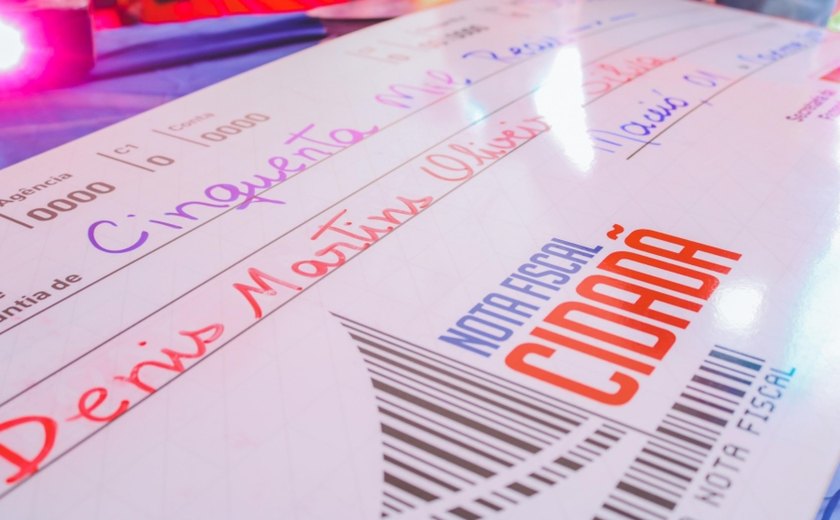 Agência C1 Conta
0000 0 0000
Cinquenta Mil Reais
antia de
Denis Martins Oliveira Silva
Mació 01
NOTA FISCAL
CIDADÃ
NOTA FISCAL